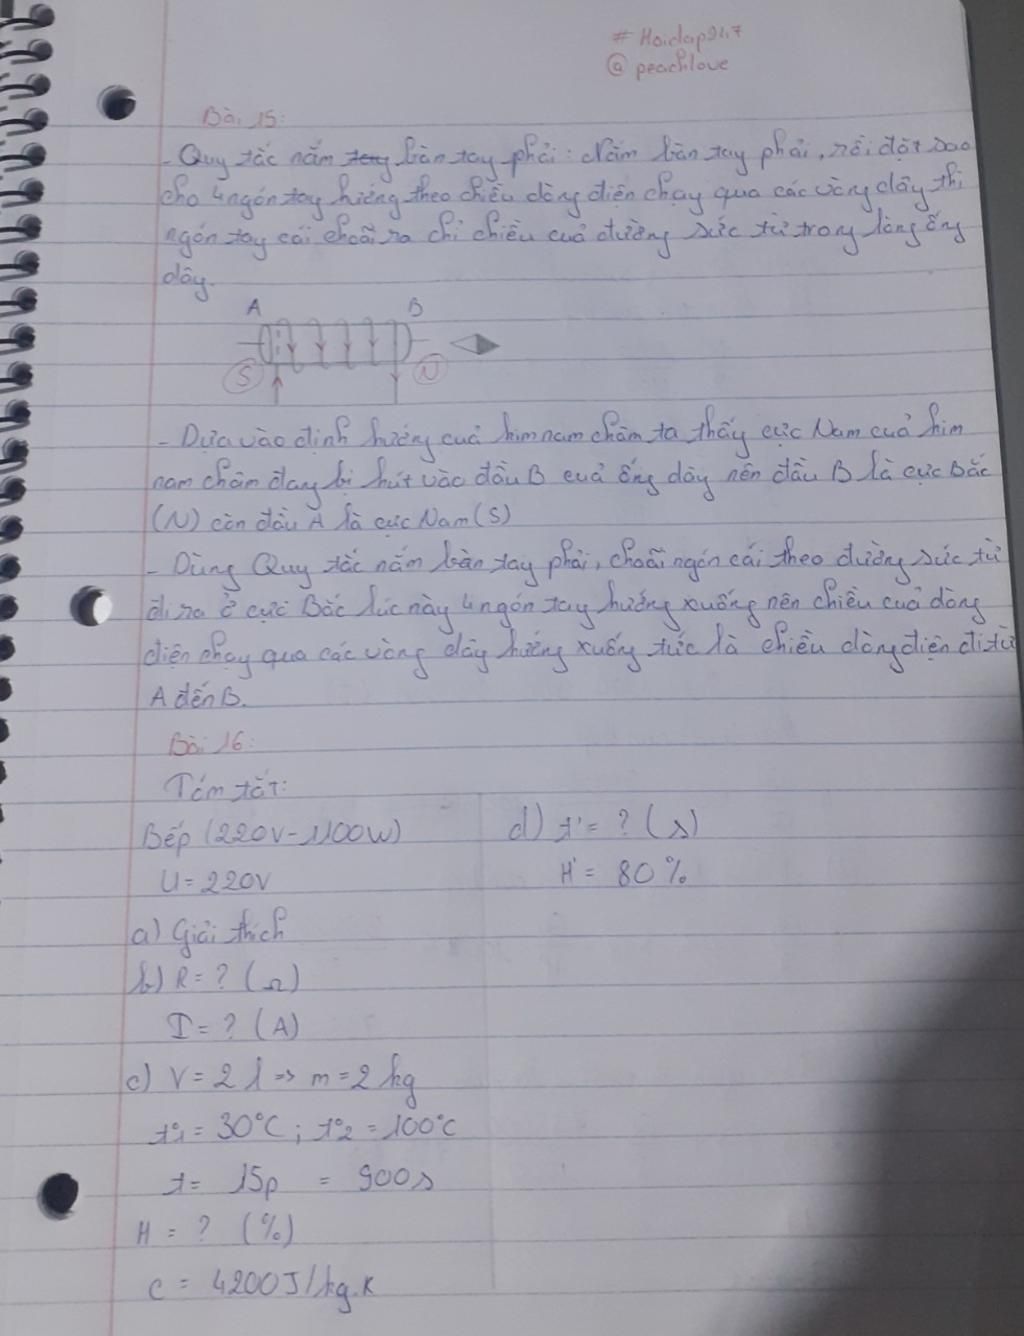 # Hoidap247
@ peachlove
Bài 15:
- Quy tắc nắm bàn tay phải: Nắm bàn tay phải, rồi đặt sao
cho 4 ngón tay hướng theo chiều dòng điện chạy qua các vòng dây thì
ngón tay cái choãi ra chỉ chiều cuả đường sức từ trong lòng ống
dây.
A B
S N
- Dựa vào định hướng cuả kim nam châm ta thấy cực Nam cuả kim
nam châm đang bị hút vào đầu B cuả ống dây nên đầu B là cực Bắc
(N) còn đầu A là cực Nam (S)
- Dùng Quy tắc nắm bàn tay phải, choãi ngón cái theo đường sức từ
đi ra ở cực Bắc lúc này 4 ngón tay hướng xuống nên chiều cuả dòng
điện chạy qua các vòng dây hướng xuống tức là chiều dòng điện đi từ
A đến B.
Bài 16:
Tóm tắt:
Bếp (220V-1100W)
U = 220V
a) Giải thích
b) R = ? (Ω)
I = ? (A)
c) V = 2 l => m = 2 kg
t°1 = 30°C ; t°2 = 100°C
t = 15p = 900s
H = ? (%)
c = 4200J/kg.K
d) t' = ? (s)
H' = 80%